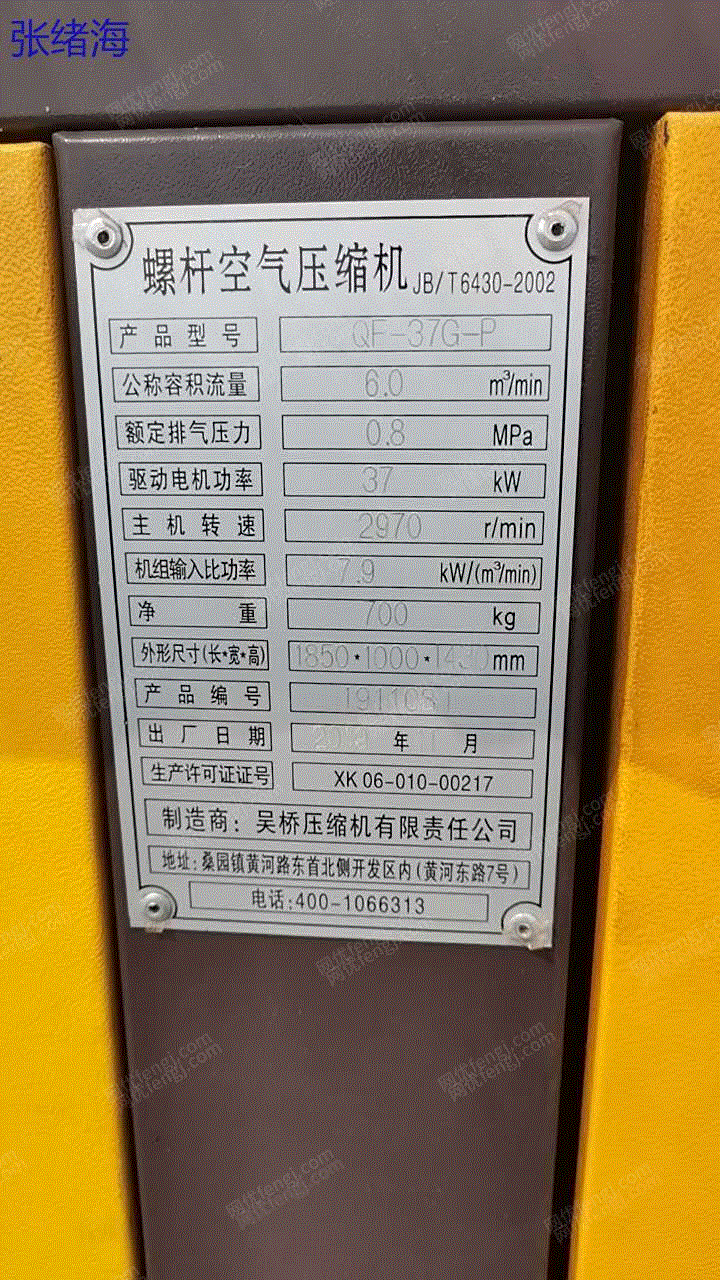 张绪海
螺杆空气压缩机 JB/T6430-2002
产品型号 QF-37G-P
公称容积流量 6.0 m³/min
额定排气压力 0.8 MPa
驱动电机功率 37 kW
主机转速 2970 r/min
机组输入比功率 7.9 kW/(m³/min)
净重 700 kg
外形尺寸(长*宽*高) 1850*1000*1430mm
产品编号 1911081
出厂日期 年 月
生产许可证证号 XK 06-010-00217
制造商:吴桥压缩机有限责任公司
地址:桑园镇黄河路东首北侧开发区内(黄河东路7号)
电话:400-1066313